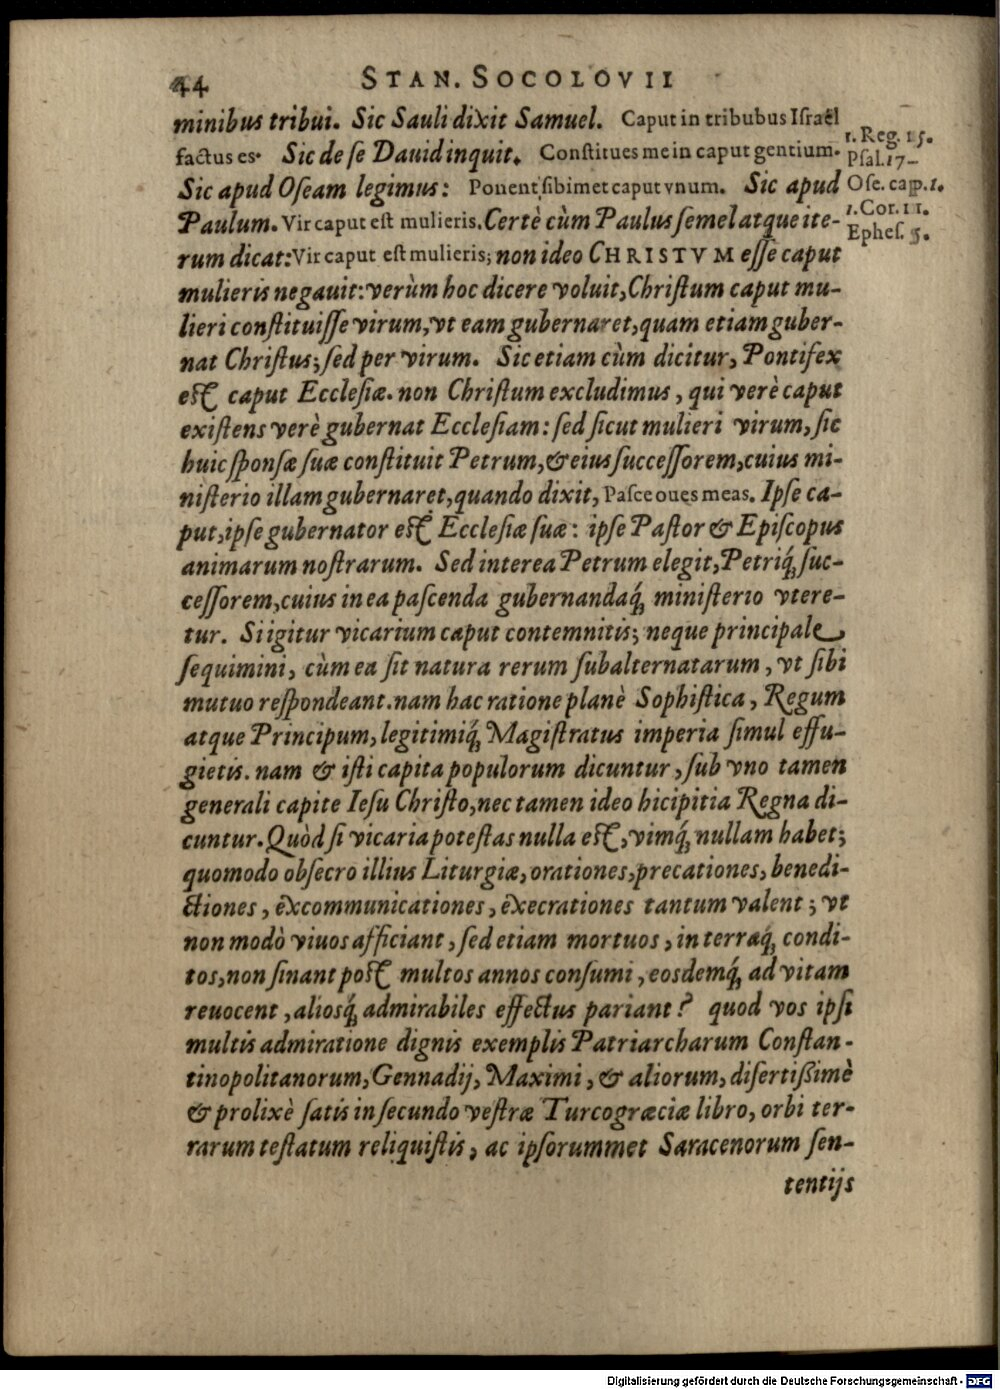 44 STAN. SOCOLOVII
minibus tribui. Sic Sauli dixit Samuel. Caput in tribubus Iſraël
factus es. Sic de ſe Dauid inquit. Conſtitues me in caput gentium.
Sic apud Oſeam legimus: Ponent ſibimet caput vnum. Sic apud
Paulum. Vir caput eſt mulieris. Certè cùm Paulus ſemel atque ite-
rum dicat: Vir caput eſt mulieris; non ideo CHRISTVM eſſe caput
mulieris negauit: verùm hoc dicere voluit, Chriſtum caput mu-
lieri conſtituiſſe virum, vt eam gubernaret, quam etiam guber-
nat Chriſtus; ſed per virum. Sic etiam cùm dicitur, Pontifex
eſt caput Eccleſiæ. non Chriſtum excludimus, qui verè caput
exiſtens verè gubernat Eccleſiam: ſed ſicut mulieri virum, ſic
huic ſponſæ ſuæ conſtituit Petrum, & eius ſucceſſorem, cuius mi-
niſterio illam gubernaret, quando dixit, Paſce oues meas. Ipſe ca-
put, ipſe gubernator eſt Eccleſiæ ſuæ: ipſe Paſtor & Epiſcopus
animarum noſtrarum. Sed interea Petrum elegit, Petriq́; ſuc-
ceſſorem, cuius in ea paſcenda gubernandaq́; miniſterio vtere-
tur. Si igitur vicarium caput contemnitis; neque principale
ſequimini, cùm ea ſit natura rerum ſubalternatarum, vt ſibi
mutuo reſpondeant. nam hac ratione planè Sophiſtica, Regum
atque Principum, legitimiq́; Magiſtratus imperia ſimul effu-
gietis. nam & iſti capita populorum dicuntur, ſub vno tamen
generali capite Ieſu Chriſto, nec tamen ideo bicipitia Regna di-
cuntur. Quòd ſi vicaria poteſtas nulla eſt, vimq́; nullam habet;
quomodo obſecro illius Liturgiæ, orationes, precationes, benedi-
ctiones, excommunicationes, execrationes tantum valent; vt
non modò viuos afficiant, ſed etiam mortuos, in terraq́; condi-
tos, non ſinant poſt multos annos conſumi, eosdemq́; ad vitam
reuocent, aliosq́; admirabiles effectus pariant? quod vos ipſi
multis admiratione dignis exemplis Patriarcharum Conſtan-
tinopolitanorum, Gennadij, Maximi, & aliorum, diſertißimè
& prolixè ſatis in ſecundo veſtræ Turcogræciæ libro, orbi ter-
rarum teſtatum reliquiſtis, ac ipſorummet Saracenorum ſen-
tentijs
1. Reg. 15.
Pſal. 17
Oſe. cap. 1.
1. Cor. 11.
Epheſ. 5.
Digitalisierung gefördert durch die Deutsche Forschungsgemeinschaft - DFG